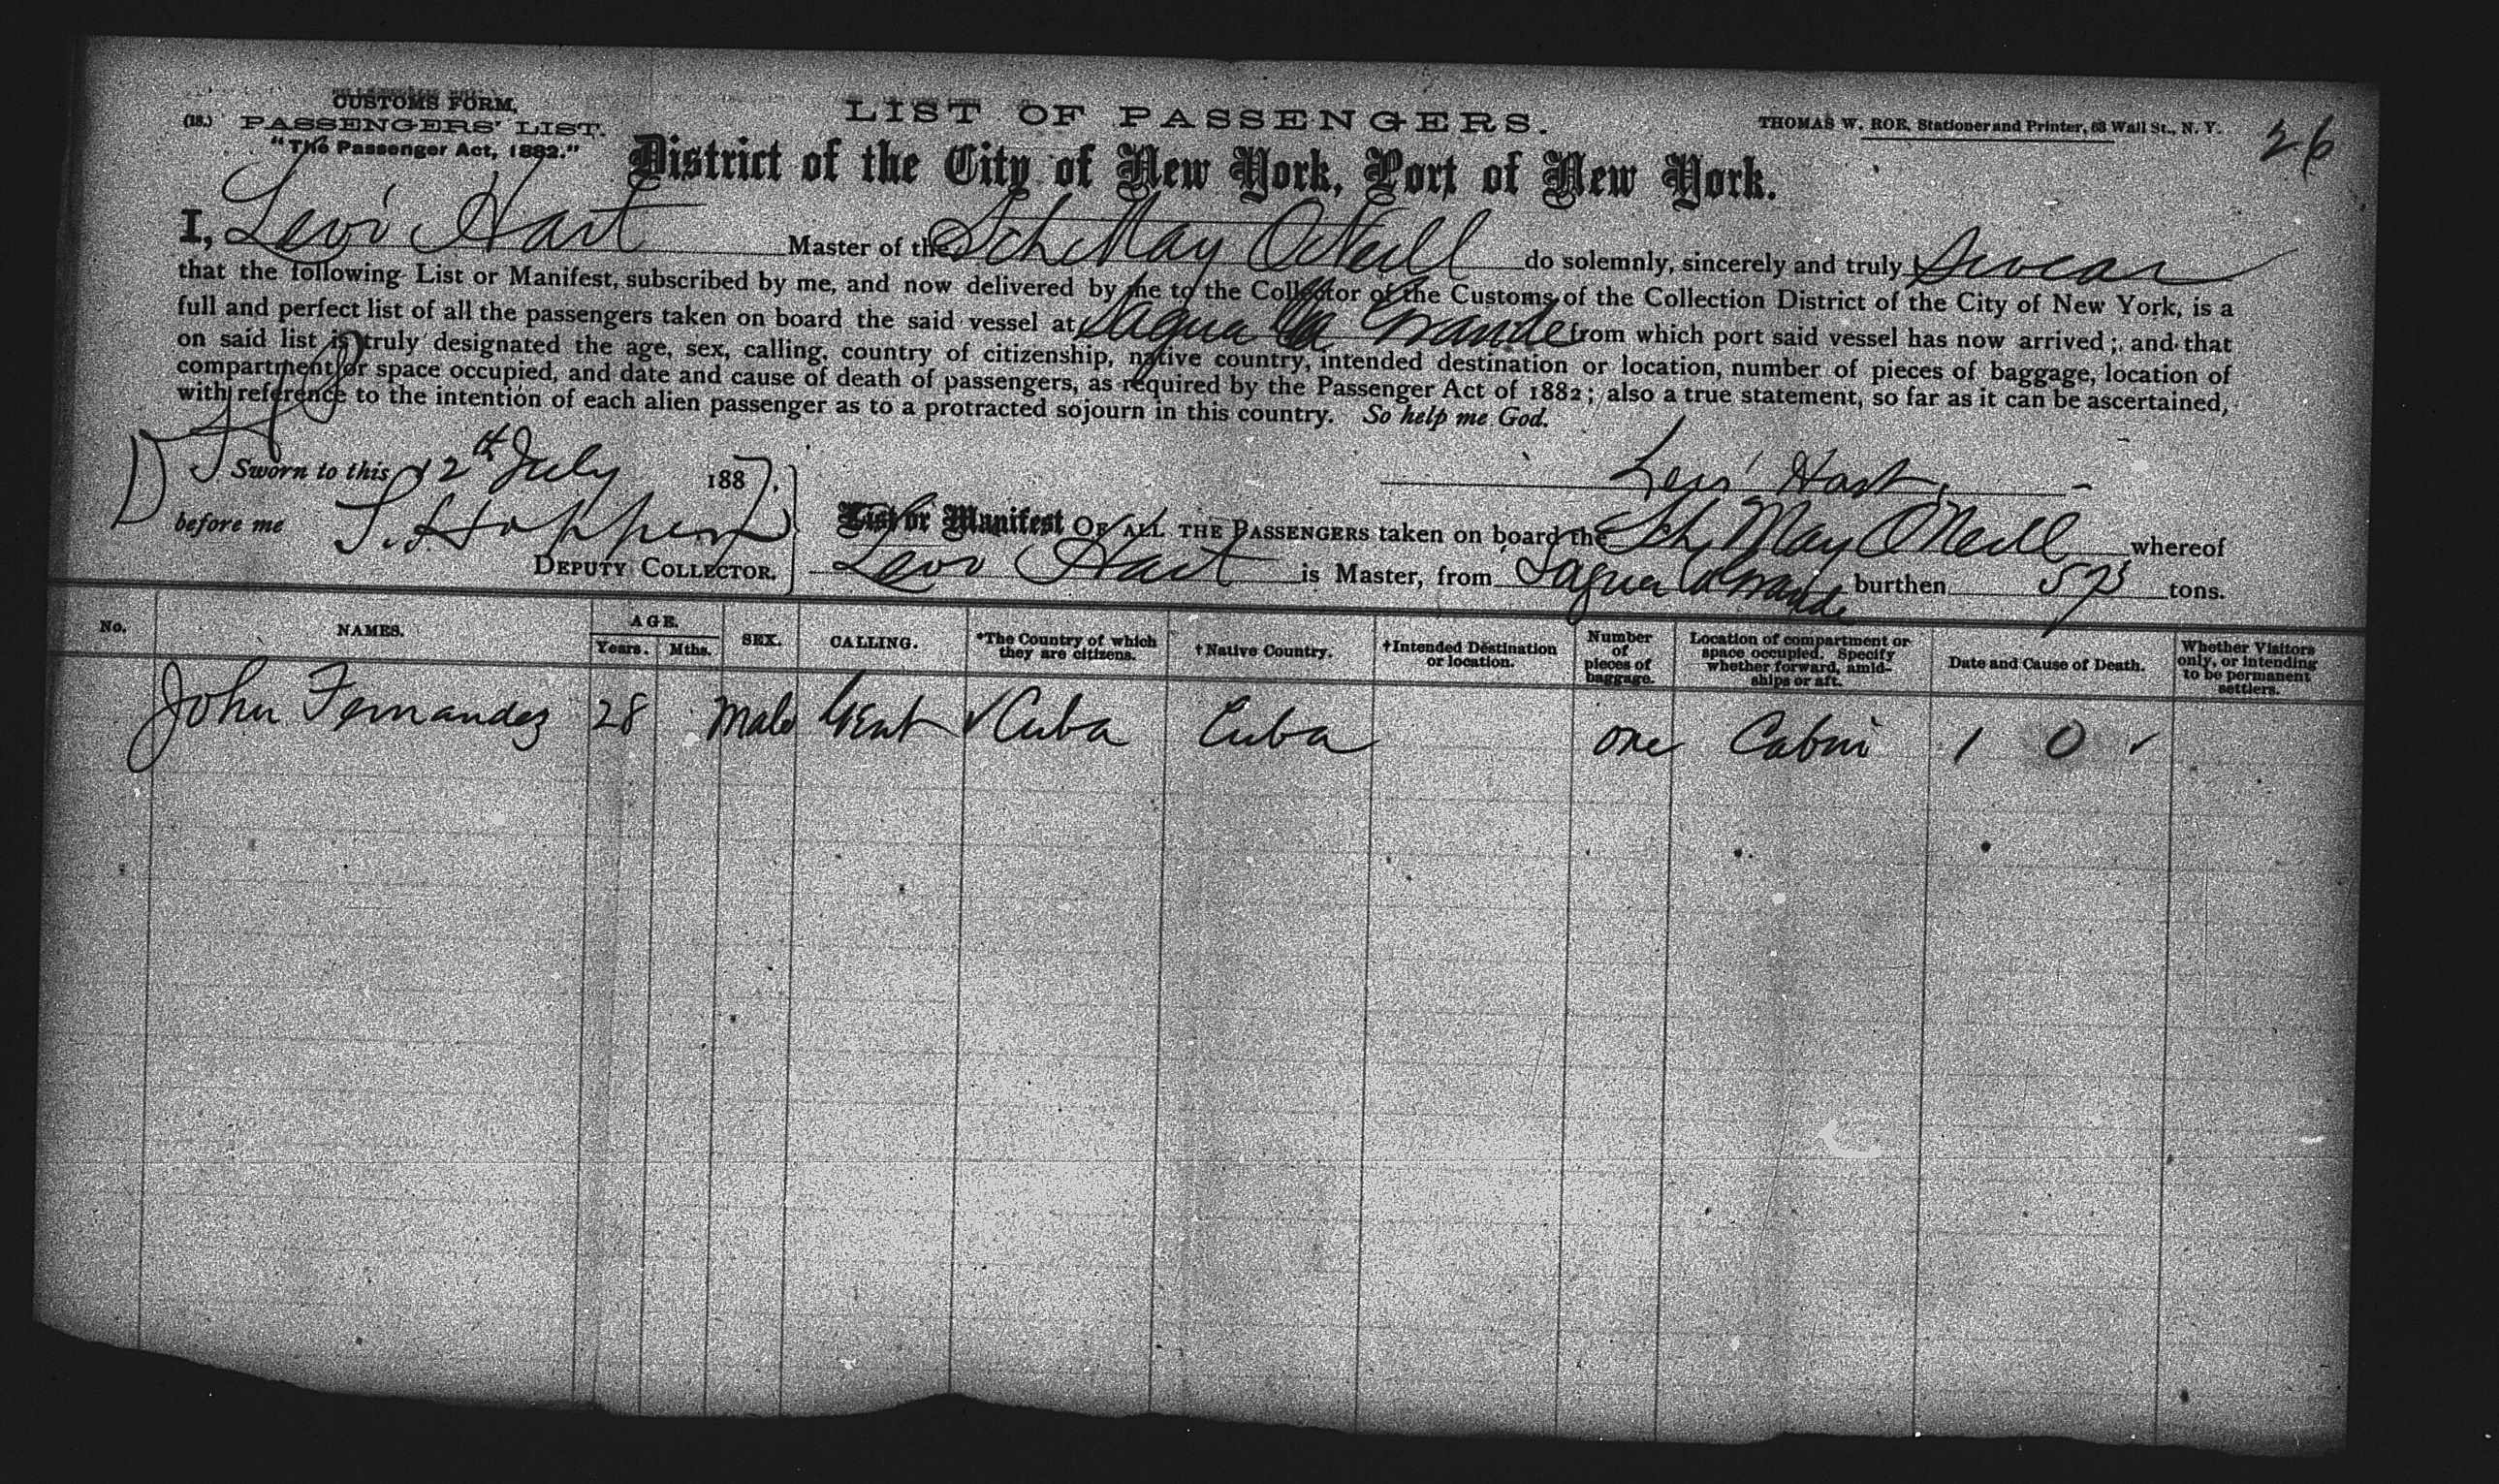 CUSTOMS FORM.
(18.) PASSENGERS' LIST.
"The Passenger Act, 1882."
LIST OF PASSENGERS.
THOMAS W. ROE, Stationer and Printer, 63 Wall St., N. Y.
26
District of the City of New York, Port of New York.
I, Levi Hart Master of the Sch May O'Neill do solemnly, sincerely and truly Swear
that the following List or Manifest, subscribed by me, and now delivered by me to the Collector of the Customs of the Collection District of the City of New York, is a
full and perfect list of all the passengers taken on board the said vessel at Sagua la Grande from which port said vessel has now arrived; and that
on said list is truly designated the age, sex, calling, country of citizenship, native country, intended destination or location, number of pieces of baggage, location of
compartment or space occupied, and date and cause of death of passengers, as required by the Passenger Act of 1882; also a true statement, so far as it can be ascertained,
with reference to the intention of each alien passenger as to a protracted sojourn in this country. So help me God.
Sworn to this 12th July 1887.
Levi Hart
before me
DEPUTY COLLECTOR.
List or Manifest OF ALL THE PASSENGERS taken on board the Sch May O'Neill whereof
Levi Hart is Master, from Sagua la Grande burthen tons.
No. NAMES. AGE. Years. Mths. SEX. CALLING. *The Country of which they are citizens. †Native Country. †Intended Destination or location. Number of pieces of baggage. Location of compartment or space occupied. Specify whether forward, amidships or aft. Date and Cause of Death. Whether Visitors only, or intending to be permanent settlers.
John Fernandez 28 Male Gent ✓ Cuba Cuba one Cabin 1 0 ✓